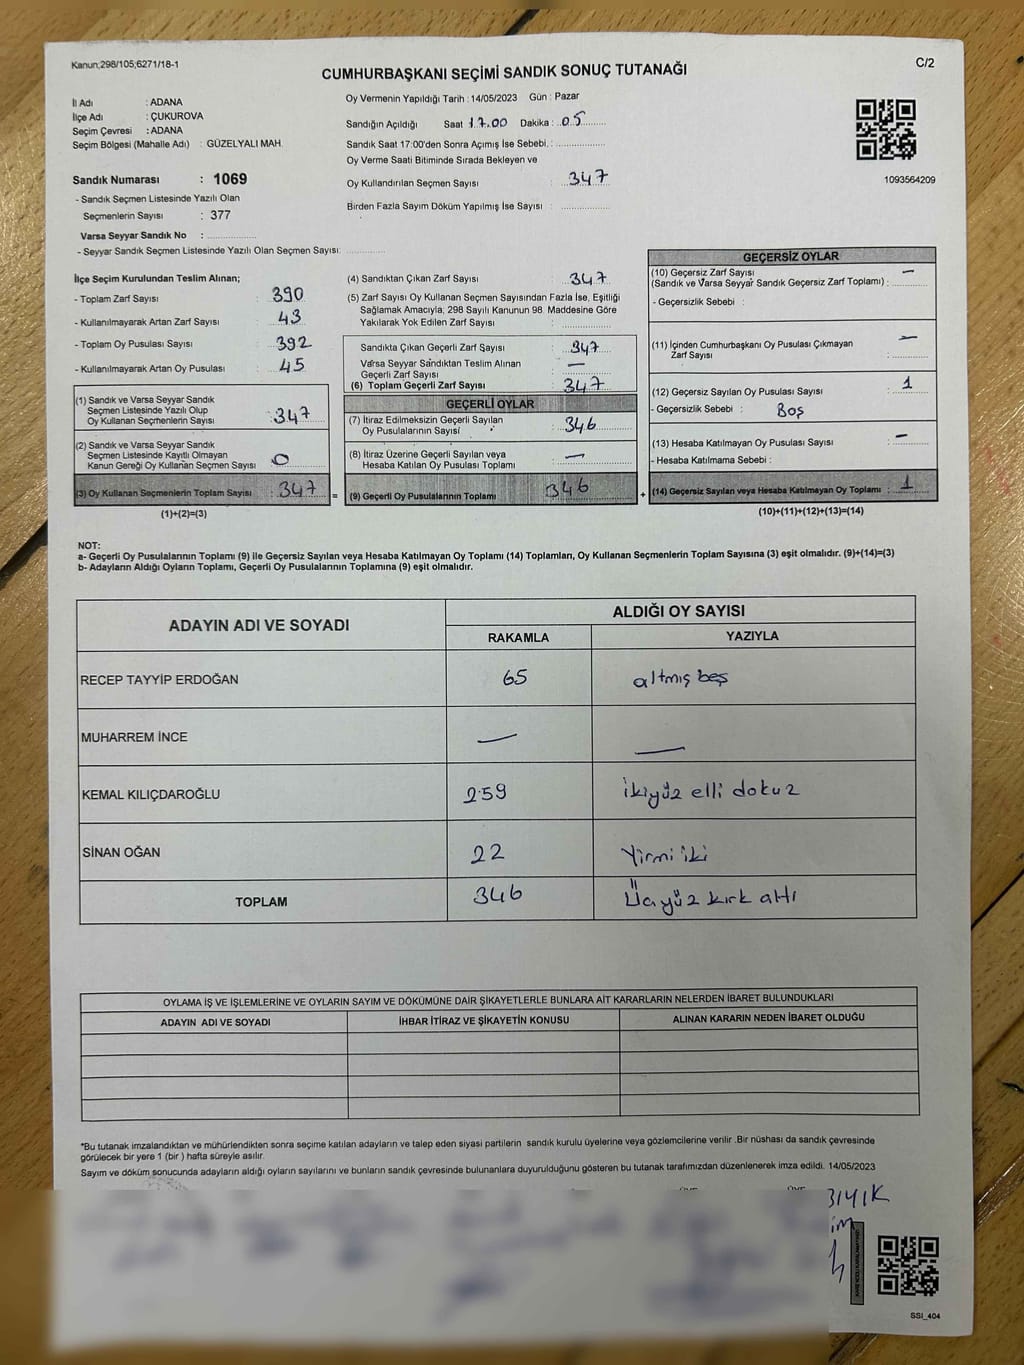 Kanun;298/105;6271/18-1
C/2
CUMHURBAŞKANI SEÇİMİ SANDIK SONUÇ TUTANAĞI
İl Adı : ADANA
İlçe Adı : ÇUKUROVA
Seçim Çevresi : ADANA
Seçim Bölgesi (Mahalle Adı) : GÜZELYALI MAH.
Sandık Numarası : 1069
- Sandık Seçmen Listesinde Yazılı Olan
Seçmenlerin Sayısı : 377
Varsa Seyyar Sandık No :
- Seyyar Sandık Seçmen Listesinde Yazılı Olan Seçmen Sayısı:
Oy Vermenin Yapıldığı Tarih : 14/05/2023 Gün : Pazar
Sandığın Açıldığı Saat 17.00 Dakika : 05
Sandık Saat 17:00'den Sonra Açımış İse Sebebi, :
Oy Verme Saati Bitiminde Sırada Bekleyen ve
Oy Kullandırılan Seçmen Sayısı : 347
Birden Fazla Sayım Döküm Yapılmış İse Sayısı :
1093564209
İlçe Seçim Kurulundan Teslim Alınan;
- Toplam Zarf Sayısı : 390
- Kullanılmayarak Artan Zarf Sayısı : 43
- Toplam Oy Pusulası Sayısı : 392
- Kullanılmayarak Artan Oy Pusulası : 45
(1) Sandık ve Varsa Seyyar Sandık
Seçmen Listesinde Yazılı Olup
Oy Kullanan Seçmenlerin Sayısı : 347
(2) Sandık ve Varsa Seyyar Sandık
Seçmen Listesinde Kayıtlı Olmayan
Kanun Gereği Oy Kullanan Seçmen Sayısı : 0
(3) Oy Kullanan Seçmenlerin Toplam Sayısı : 347
(1)+(2)=(3)
(4) Sandıktan Çıkan Zarf Sayısı : 347
(5) Zarf Sayısı Oy Kullanan Seçmen Sayısından Fazla İse, Eşitliği
Sağlamak Amacıyla; 298 Sayılı Kanunun 98. Maddesine Göre
Yakılarak Yok Edilen Zarf Sayısı :
Sandıkta Çıkan Geçerli Zarf Sayısı : 347
Varsa Seyyar Sandıktan Teslim Alınan
Geçerli Zarf Sayısı : —
(6) Toplam Geçerli Zarf Sayısı : 347
GEÇERLİ OYLAR
(7) İtiraz Edilmeksizin Geçerli Sayılan
Oy Pusulalarının Sayısı : 346
(8) İtiraz Üzerine Geçerli Sayılan veya
Hesaba Katılan Oy Pusulası Toplamı : —
= (9) Geçerli Oy Pusulalarının Toplamı 346
GEÇERSİZ OYLAR
(10) Geçersiz Zarf Sayısı —
(Sandık ve Varsa Seyyar Sandık Geçersiz Zarf Toplamı) :
- Geçersizlik Sebebi :
(11) İçinden Cumhurbaşkanı Oy Pusulası Çıkmayan —
Zarf Sayısı :
(12) Geçersiz Sayılan Oy Pusulası Sayısı : 1
- Geçersizlik Sebebi : Boş
(13) Hesaba Katılmayan Oy Pusulası Sayısı : —
- Hesaba Katılmama Sebebi :
+ (14) Geçersiz Sayılan veya Hesaba Katılmayan Oy Toplamı : 1
(10)+(11)+(12)+(13)=(14)
NOT:
a- Geçerli Oy Pusulalarının Toplamı (9) ile Geçersiz Sayılan veya Hesaba Katılmayan Oy Toplamı (14) Toplamları, Oy Kullanan Seçmenlerin Toplam Sayısına (3) eşit olmalıdır. (9)+(14)=(3)
b- Adayların Aldığı Oyların Toplamı, Geçerli Oy Pusulalarının Toplamına (9) eşit olmalıdır.
ADAYIN ADI VE SOYADI ALDIĞI OY SAYISI
RAKAMLA YAZIYLA
RECEP TAYYİP ERDOĞAN 65 altmış beş
MUHARREM İNCE — —
KEMAL KILIÇDAROĞLU 259 ikiyüz elli dokuz
SİNAN OĞAN 22 Yirmi iki
TOPLAM 346 Üçyüz kırk altı
OYLAMA İŞ VE İŞLEMLERİNE VE OYLARIN SAYIM VE DÖKÜMÜNE DAİR ŞİKAYETLERLE BUNLARA AİT KARARLARIN NELERDEN İBARET BULUNDUKLARI
ADAYIN ADI VE SOYADI İHBAR İTİRAZ VE ŞİKAYETİN KONUSU ALINAN KARARIN NEDEN İBARET OLDUĞU
*Bu tutanak imzalandıktan ve mühürlendikten sonra seçime katılan adayların ve talep eden siyasi partilerin sandık kurulu üyelerine veya gözlemcilerine verilir .Bir nüshası da sandık çevresinde
görülecek bir yere 1 (bir ) hafta süreyle asılır.
Sayım ve döküm sonucunda adayların aldığı oyların sayılarını ve bunların sandık çevresinde bulunanlara duyurulduğunu gösteren bu tutanak tarafımızdan düzenlenerek imza edildi. 14/05/2023
SSI_404